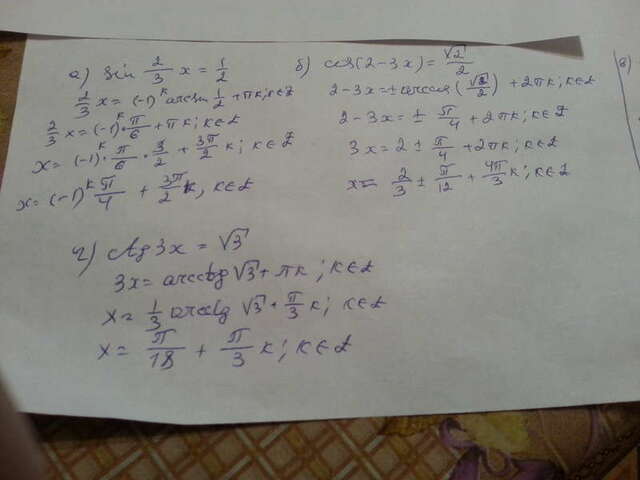 а) sin 2/3 x = 1/2
2/3 x = (-1)^k arcsin 1/2 + πk; k∈Z
2/3 x = (-1)^k · π/6 + πk; k∈Z
x = (-1)^k · π/6 · 3/2 + 3π/2 k; k∈Z
x = (-1)^k π/4 + 3π/2 k, k∈Z
б) cos(2-3x) = √2/2
2-3x = ± arccos(√2/2) + 2πk; k∈Z
2-3x = ± π/4 + 2πk; k∈Z
3x = 2 ± π/4 + 2πk; k∈Z
x = 2/3 ± π/12 + 4π/3 k; k∈Z
в)
г) ctg 3x = √3
3x = arcctg √3 + πk; k∈Z
x = 1/3 arcctg √3 + π/3 k; k∈Z
x = π/18 + π/3 k; k∈Z